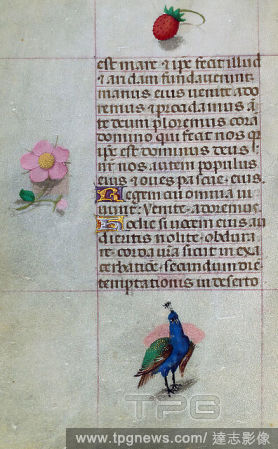 est mare & ipse fecit illud
& aridam fundaverunt
manus eius venite ado
remus & procidamus a
te deum ploremus corā
domino qui fecit nos q
ipse est dominus deus
nos autem populus
eius & oves pascue eius.
Regem cui omnia vi
vunt: Venite adoremus
Hodie si vocem eius au
dieritis nolite obdura
re corda vrā sicut in exa
cerbatiōe secundum diē
temptationis in deserto
TPG
www.tpgnews.com/ 達志影像